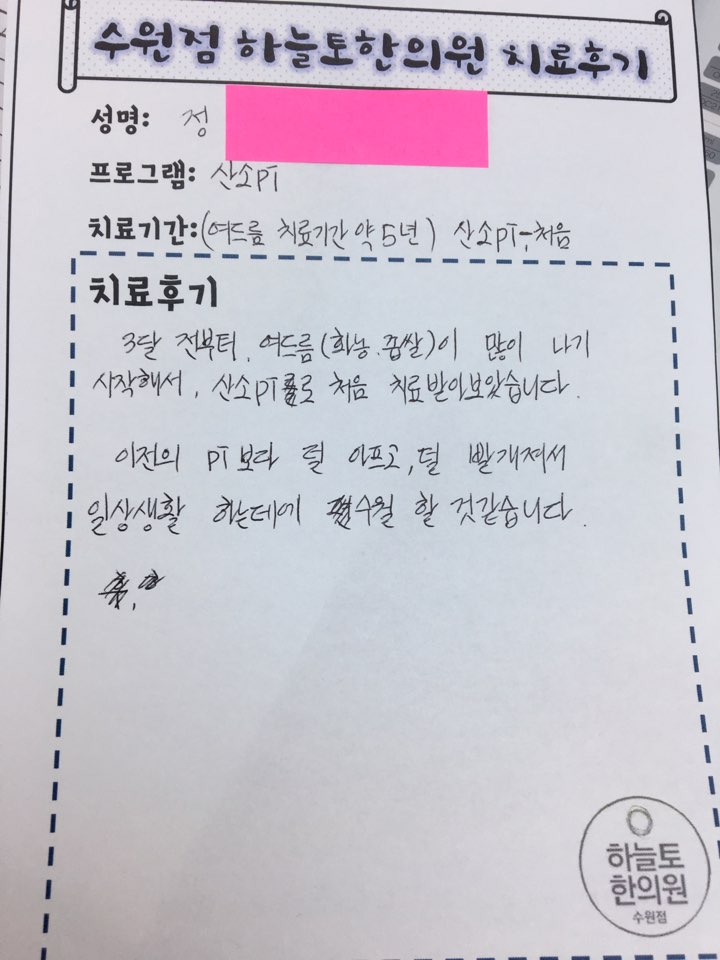 수원점 하늘토한의원 치료후기
성명: 정
프로그램: 산소PT
치료기간:(여드름 치료기간 약 5년) 산소PT-처음
치료후기
3달 전부터, 여드름(화농.좁쌀)이 많이 나기
시작해서, 산소PT로 처음 치료받아보았습니다.
이전의 PT보다 덜 아프고, 덜 빨개져서
일상생활 하는데에 수월 할 것같습니다.
하늘토
한의원
수원점